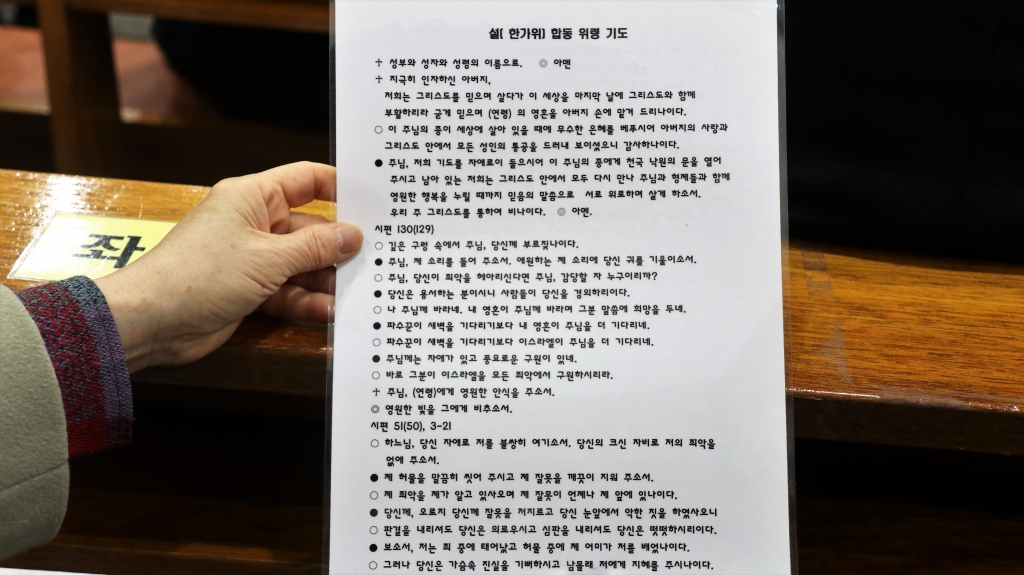 설( 한가위) 합동 위령 기도
♱ 성부와 성자와 성령의 이름으로. ◎ 아멘
♱ 지극히 인자하신 아버지,
저희는 그리스도를 믿으며 살다가 이 세상을 마지막 날에 그리스도와 함께
부활하리라 굳게 믿으며 (연령) 의 영혼을 아버지 손에 맡겨 드리나이다.
○ 이 주님의 종이 세상에 살아 있을 때에 무수한 은혜를 베푸시어 아버지의 사랑과
그리스도 안에서 모든 성인의 통공을 드러내 보이셨으니 감사하나이다.
● 주님, 저희 기도를 자애로이 들으시어 이 주님의 종에게 천국 낙원의 문을 열어
주시고 남아 있는 저희는 그리스도 안에서 모두 다시 만나 주님과 형제들과 함께
영원한 행복을 누릴 때까지 믿음의 말씀으로 서로 위로하며 살게 하소서.
우리 주 그리스도를 통하여 비나이다. ◎ 아멘.
시편 130(129)
○ 깊은 구렁 속에서 주님, 당신께 부르짖나이다.
● 주님, 제 소리를 들어 주소서. 애원하는 제 소리에 당신 귀를 기울이소서.
○ 주님, 당신이 죄악을 헤아리신다면 주님, 감당할 자 누구이리까?
● 당신은 용서하는 분이시니 사람들이 당신을 경외하리이다.
○ 나 주님께 바라네. 내 영혼이 주님께 바라며 그분 말씀에 희망을 두네.
● 파수꾼이 새벽을 기다리기보다 내 영혼이 주님을 더 기다리네.
○ 파수꾼이 새벽을 기다리기보다 이스라엘이 주님을 더 기다리네.
● 주님께는 자애가 있고 풍요로운 구원이 있네.
○ 바로 그분이 이스라엘을 모든 죄악에서 구원하시리라.
♱ 주님, (연령)에게 영원한 안식을 주소서.
◎ 영원한 빛을 그에게 비추소서.
시편 51(50), 3-21
○ 하느님, 당신 자애로 저를 불쌍히 여기소서. 당신의 크신 자비로 저의 죄악을
없애 주소서.
● 제 허물을 말끔히 씻어 주시고 제 잘못을 깨끗이 지워 주소서.
○ 제 죄악을 제가 알고 있사오며 제 잘못이 언제나 제 앞에 있나이다.
● 당신께, 오로지 당신께 잘못을 저지르고 당신 눈앞에서 악한 짓을 하였사오니
○ 판결을 내리셔도 당신은 의로우시고 심판을 내리셔도 당신은 떳떳하시리이다.
● 보소서, 저는 죄 중에 태어났고 허물 중에 제 어미가 저를 배었나이다.
○ 그러나 당신은 가슴속 진실을 기뻐하시고 남몰래 저에게 지혜를 주시나이다.
좌